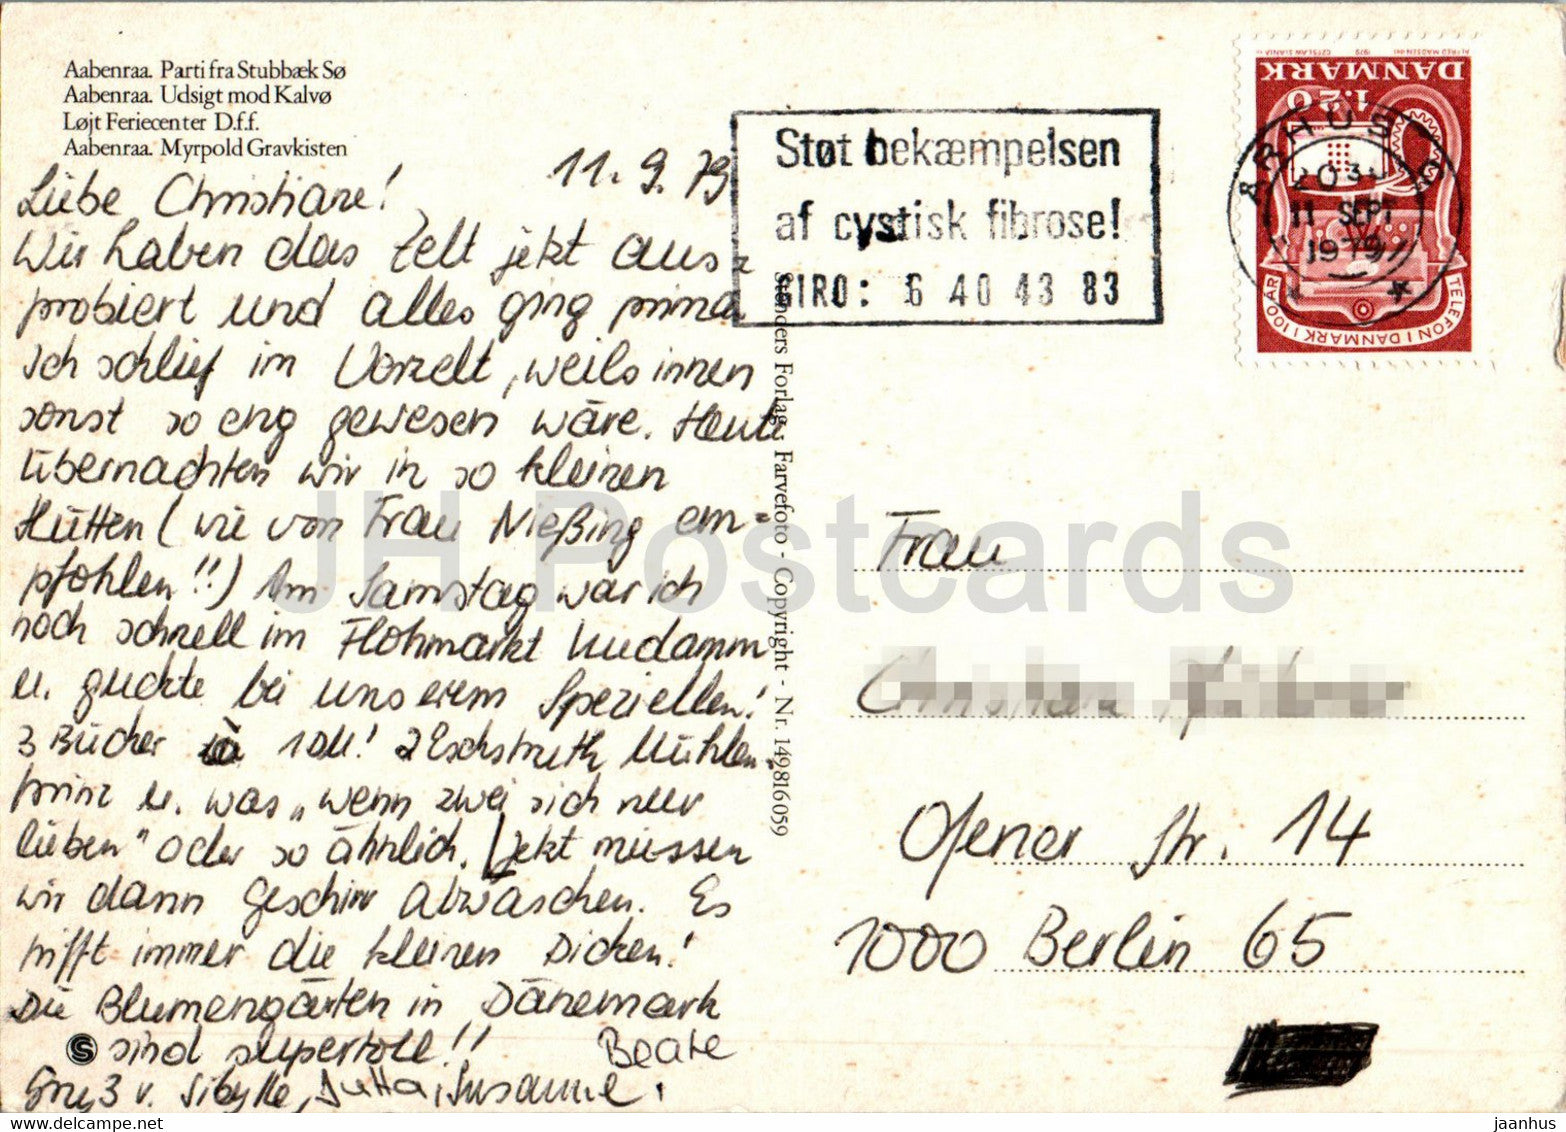 Aabenraa. Parti fra Stubbæk Sø
Aabenraa. Udsigt mod Kalvø
Løjt Feriecenter D.f.f.
Aabenraa. Myrpold Gravkisten
11. 9. 79
Liebe Christiane!
Wir haben das Zelt jetzt aus-
probiert und alles ging prima
Ich schlief im Vorzelt, weils innen
sonst so eng gewesen wäre. Heute
übernachten wir in so kleinen
Hütten (wie von Frau Nießing em=
pfohlen!!) Am Samstag war ich
noch schnell im Flohmarkt Kudamm
u. guckte bei unserem Speziellen!
3 Bücher à 1 DM! 2 Eschstruth Mühlen-
prinz u. was „wenn zwei sich nur
lieben" oder so ähnlich. Jetzt müssen
wir dann Geschirr abwaschen. Es
trifft immer die kleinen Dicken!
Die Blumengärten in Dänemark
sind supertoll!! Beate
v. Sibylle, Jutta, Susanne.
S
Stønders Forlag. Farvefoto - Copyright - Nr. 149816059
Støt bekæmpelsen
af cystisk fibrose!
GIRO: 6 40 43 83
ALFRED MADSEN del. 1979 CZESLAW SLANIA sc.
DANMARK
1.20
TELEFON I DANMARK I 100 ÅR
ÅRHUS C
11 SEPT
1979
Frau
Christiane
Ofener Str. 14
1000 Berlin 65
JH Postcards
www.hippostcard.com/store/jhpostcards
jaanhus